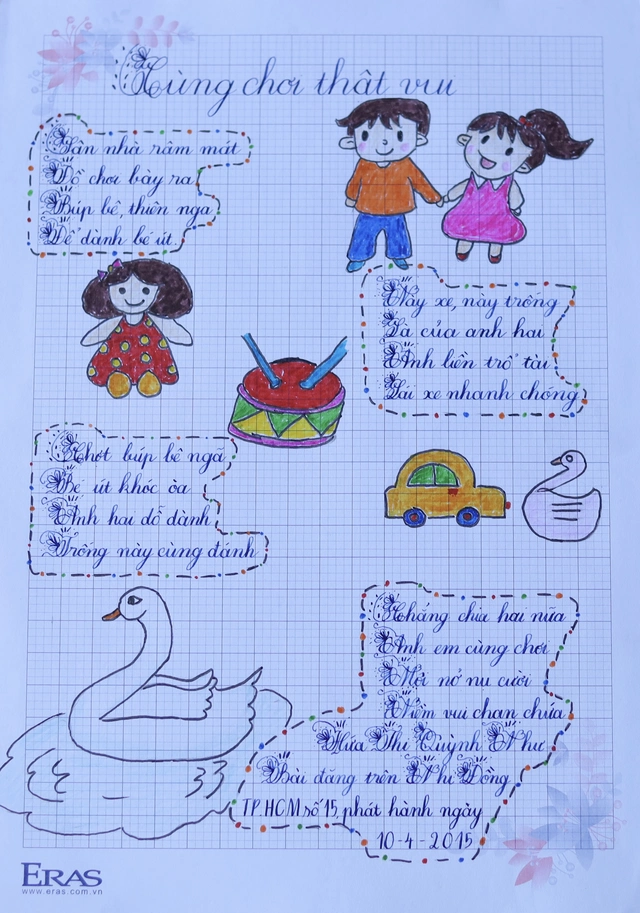 Cùng chơi thật vui
Sân nhà râm mát
Đồ chơi bày ra
Búp bê, thiên nga
Để dành bé út.
Này xe, này trống
Là của anh hai
Anh liền trổ tài
Lái xe nhanh chóng
Chợt búp bê ngã
Bé út khóc òa
Anh hai dỗ dành
Trống này cùng đánh
Chẳng chia hai nữa
Anh em cùng chơi
Môi nở nụ cười
Niềm vui chan chứa
Hứa Thị Quỳnh Như
Bài đăng trên Nhi Đồng
TP.HCM số 15, phát hành ngày
10-4-2015
ERAS
www.eras.com.vn